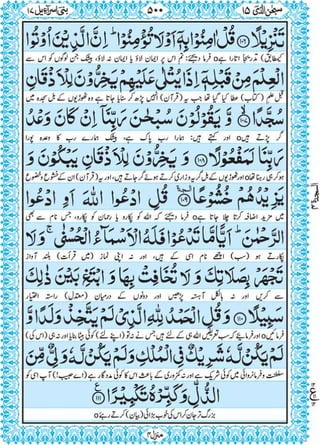 سبحٰن الذی ۱۵ ۵۰۰ بنی اسراءیل ۱۷
تَنْزِیْلًا ﴿۱۰۶﴾ قُلْ اٰمِنُوْا بِهٖۤ اَوْ لَا تُؤْمِنُوْا ؕ اِنَّ الَّذِیْنَ اُوْتُوا
اتارا ہےo فرما دیجئے: تم اس پر ایمان لاؤ یا ایمان نہ لاؤ، بیشک جن لوگوں کو اس سے
الْعِلْمَ مِنْ قَبْلِهٖۤ اِذَا یُتْلٰی عَلَیْهِمْ یَخِرُّوْنَ لِلْاَذْقَانِ
قبل علم (کتاب) عطا کیا گیا تھا جب یہ (قرآن) انہیں پڑھ کر سنایا جاتا ہے وہ ٹھوڑیوں کے بل سجدہ میں
سُجَّدًا ﴿۱۰۷﴾ وَّ یَقُوْلُوْنَ سُبْحٰنَ رَبِّنَاۤ اِنْ كَانَ وَعْدُ
گر پڑتے ہیںo اور کہتے ہیں: ہمارا رب پاک ہے، بیشک ہمارے رب کا وعدہ پورا
رَبِّنَا لَمَفْعُوْلًا ﴿۱۰۸﴾ وَ یَخِرُّوْنَ لِلْاَذْقَانِ یَبْكُوْنَ وَ
ہو کر ہی رہنا تھاo اور ٹھوڑیوں کے بل گریہ و زاری کرتے ہوئے گر جاتے ہیں، اور یہ (قرآن) ان کے خشوع و خضوع
یَزِیْدُهُمْ خُشُوْعًا ﴿۱۰۹﴾ قُلِ ادْعُوا اللّٰهَ اَوِ ادْعُوا
میں مزید اضافہ کرتا چلا جاتا ہےo فرما دیجئے کہ اللہ کو پکارو یا رحمان کو پکارو، جس نام سے بھی
الرَّحْمٰنَ ؕ اَیًّا مَّا تَدْعُوْا فَلَهُ الْاَسْمَآءُ الْحُسْنٰی ۚ وَ لَا
پکارتے ہو (سب) اچھے نام اسی کے ہیں، اور نہ اپنی نماز (میں قرآت) بلند آواز
تَجْهَرْ بِصَلَاتِكَ وَ لَا تُخَافِتْ بِهَا وَ ابْتَغِ بَیْنَ ذٰلِكَ
سے کریں اور نہ بالکل آہستہ پڑھیں اور دونوں کے درمیان (معتدل) راستہ اختیار
سَبِیْلًا ﴿۱۱۰﴾ وَ قُلِ الْحَمْدُ لِلّٰهِ الَّذِیْ لَمْ یَتَّخِذْ وَلَدًا وَّ
فرمائیںo اور فرمائیے کہ سب تعریفیں اللہ ہی کے لئے ہیں جس نے نہ تو (اپنے لئے) کوئی بیٹا بنایا اور نہ ہی (اس کی)
لَمْ یَكُنْ لَّهٗ شَرِیْكٌ فِی الْمُلْكِ وَ لَمْ یَكُنْ لَّهٗ وَلِیٌّ مِّنَ
سلطنت و فرمانروائی میں کوئی شریک ہے اور نہ کمزوری کے باعث اس کا کوئی مددگار ہے (اے حبیب!) آپ اسی کو
الذُّلِّ وَ كَبِّرْهُ تَكْبِیْرًا ﴿۱۱۱﴾
بزرگ تر جان کر اس کی خوب بڑائی (بیان) کرتے رہئےo
منزل ۴